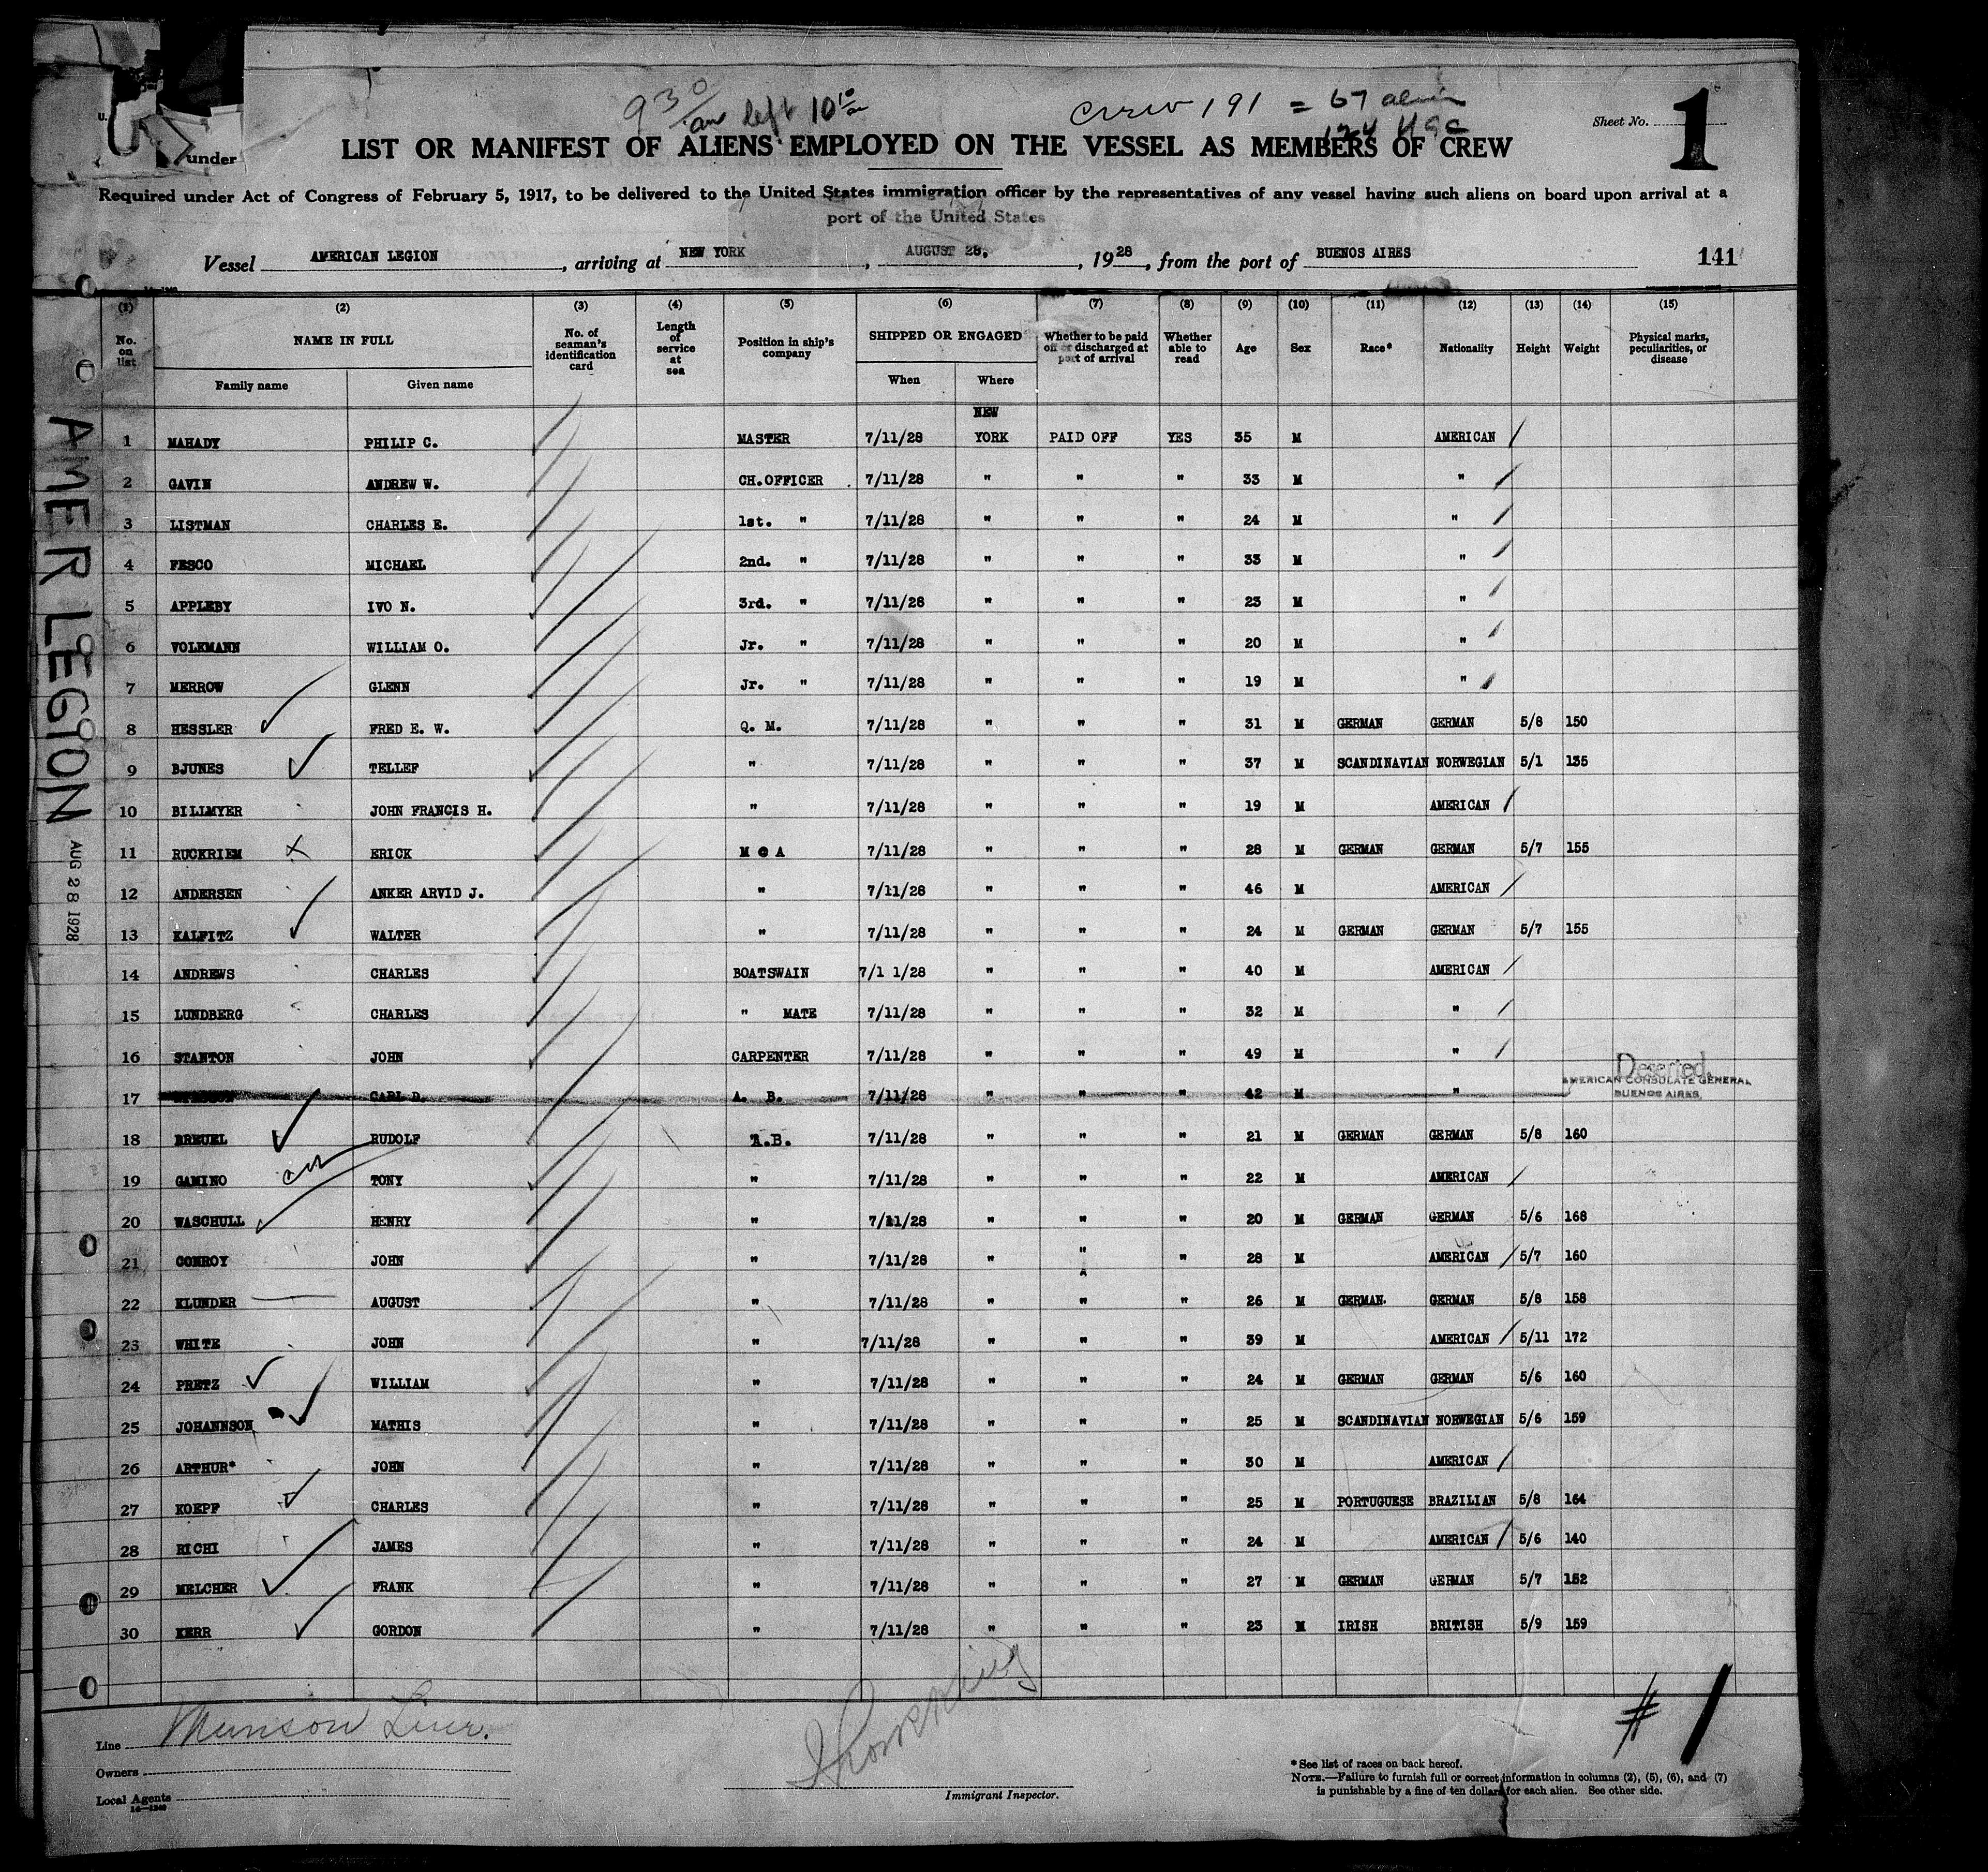 930 am left 10 10/am
Crew 191 = 67 alien
124 USC
u.
under
Sheet No. 1
LIST OR MANIFEST OF ALIENS EMPLOYED ON THE VESSEL AS MEMBERS OF CREW
Required under Act of Congress of February 5, 1917, to be delivered to the United States immigration officer by the representatives of any vessel having such aliens on board upon arrival at a
port of the United States
Vessel AMERICAN LEGION, arriving at NEW YORK, AUGUST 28, 1928, from the port of BUENOS AIRES 141
(1) (2) (3) (4) (5) (6) (7) (8) (9) (10) (11) (12) (13) (14) (15)
No. on list NAME IN FULL Family name Given name No. of seaman's identification card Length of service at sea Position in ship's company SHIPPED OR ENGAGED When Where Whether to be paid off or discharged at port of arrival Whether able to read Age Sex Race* Nationality Height Weight Physical marks, peculiarities, or disease
NEW
1 MAHADY PHILIP C. MASTER 7/11/28 YORK PAID OFF YES 35 M AMERICAN
2 GAVIN ANDREW W. CH.OFFICER 7/11/28 " " " 33 M "
3 LISTMAN CHARLES E. 1st. " 7/11/28 " " " 24 M "
4 FESCO MICHAEL 2nd. " 7/11/28 " " " 33 M "
5 APPLEBY IVO N. 3rd. " 7/11/28 " " " 23 M "
6 VOLKMANN WILLIAM O. Jr. " 7/11/28 " " " 20 M "
7 MERROW GLENN Jr. " 7/11/28 " " " 19 M "
8 HESSLER FRED E. W. Q. M. 7/11/28 " " " 31 M GERMAN GERMAN 5/8 150
9 BJUNES TELLEF " 7/11/28 " " " 37 M SCANDINAVIAN NORWEGIAN 5/1 135
10 BILLMYER JOHN FRANCIS H. " 7/11/28 " " " 19 M AMERICAN
11 RUCKRIEM ERICK M C A 7/11/28 " " " 28 M GERMAN GERMAN 5/7 155
12 ANDERSEN ANKER ARVID J. " 7/11/28 " " " 46 M AMERICAN
13 KALFITZ WALTER " 7/11/28 " " " 24 M GERMAN GERMAN 5/7 155
14 ANDREWS CHARLES BOATSWAIN 7/1 1/28 " " " 40 M AMERICAN
15 LUNDBERG CHARLES " MATE 7/11/28 " " " 32 M "
16 STANTON JOHN CARPENTER 7/11/28 " " " 49 M "
17 CARL D. A. B. 7/11/28 " " " 42 M " Deserted.
AMERICAN CONSULATE GENERAL
BUENOS AIRES.
18 BREUEL RUDOLF A.B. 7/11/28 " " " 21 M GERMAN GERMAN 5/8 160
19 GAMINO TONY " 7/11/28 " " " 22 M AMERICAN
20 WASCHULL HENRY " 7/11/28 " " " 20 M GERMAN GERMAN 5/6 168
21 CONROY JOHN " 7/11/28 " " " 28 M AMERICAN 5/7 160
22 KLUNDER AUGUST " 7/11/28 " " " 26 M GERMAN. GERMAN 5/8 158
23 WHITE JOHN " 7/11/28 " " " 39 M AMERICAN 5/11 172
24 PRETZ WILLIAM " 7/11/28 " " " 24 M GERMAN GERMAN 5/6 160
25 JOHANNSON MATHIS " 7/11/28 " " " 25 M SCANDINAVIAN NORWEGIAN 5/6 159
26 ARTHUR* JOHN " 7/11/28 " " " 30 M AMERICAN
27 KOEPF CHARLES " 7/11/28 " " " 25 M PORTUGUESE BRAZILIAN 5/8 164
28 RICHI JAMES " 7/11/28 " " " 24 M AMERICAN 5/6 140
29 MELCHER FRANK " 7/11/28 " " " 27 M GERMAN GERMAN 5/7 152
30 KERR GORDON " 7/11/28 " " " 23 M IRISH BRITISH 5/9 159
AMER LEGION
AUG 28 1928
# 1
Line Munson Line.
Owners
Local Agents
14—1240
Immigrant Inspector.
* See list of races on back hereof.
NOTE.—Failure to furnish full or correct information in columns (2), (5), (6), and (7)
is punishable by a fine of ten dollars for each alien. See other side.